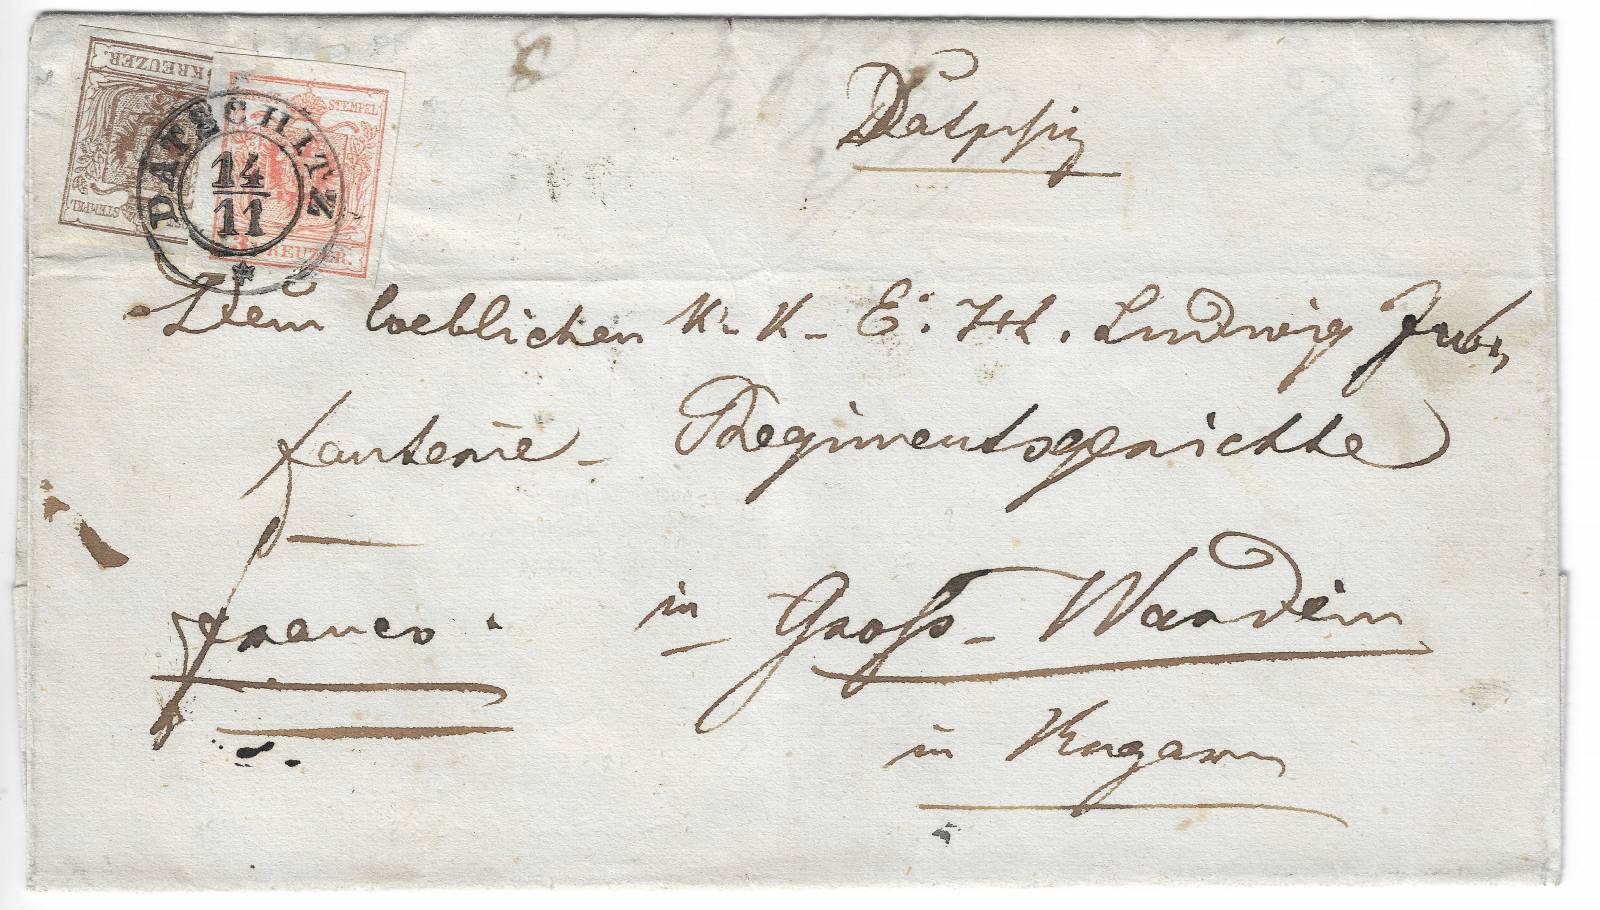 KREUZER.
STEMPEL
STEMPEL
KREUZER.
DATSCHITZ
14
11
Datschitz
Dem loeblichen K. K. E. H. Ludwig In=
fanterie- Regimentsgerichte
franco.
in Groß-Wardein
in Ungarn